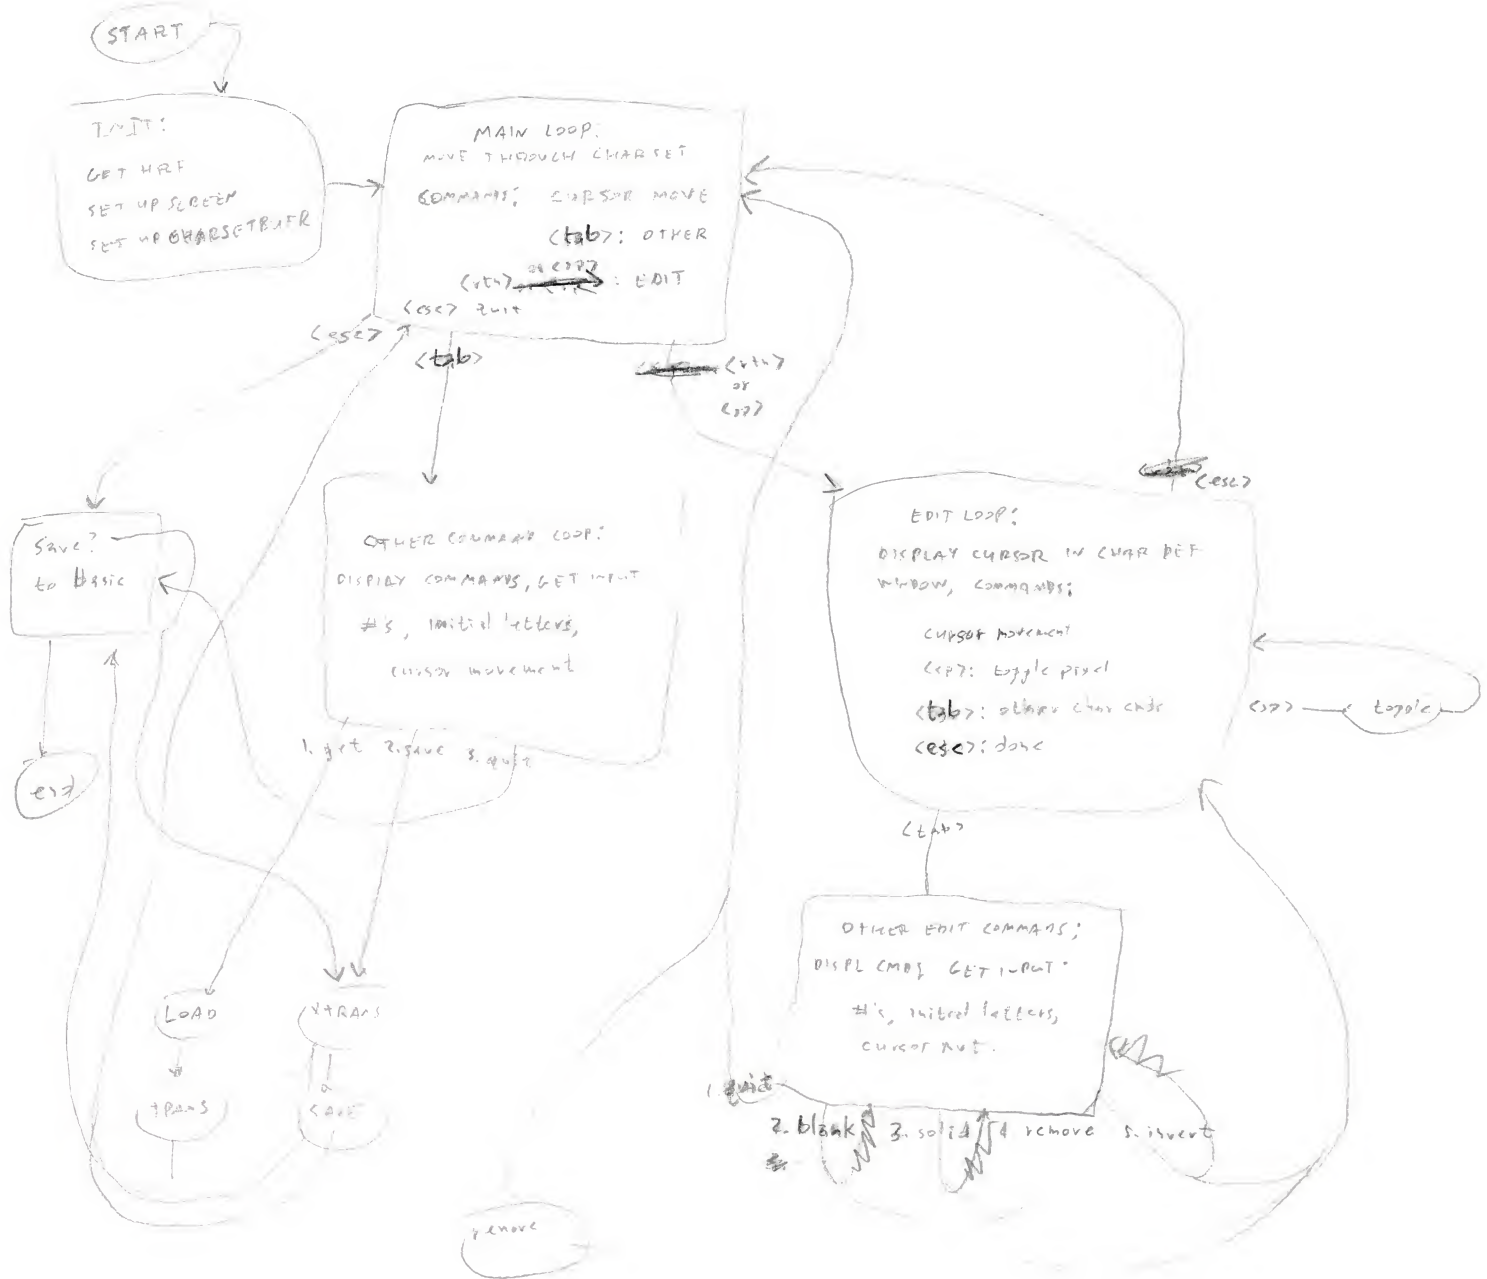 START
INIT:
GET HRF
SET UP SCREEN
SET UP CHARSETBUFR
MAIN LOOP:
MOVE THROUGH CHARSET
COMMANDS: CURSOR MOVE
<tab>: OTHER
or <sp>
<rtn> : EDIT
<esc> quit
<esc>
<tab>
<rtn>
or
<sp>
save?
to basic
end
OTHER COMMAND LOOP:
DISPLAY COMMANDS, GET INPUT
#'s, initial letters,
cursor movement
1. get 2. save 3. quit
LOAD
TRANS
XTRANS
SAVE
<esc>
EDIT LOOP:
DISPLAY CURSOR IN CHAR DEF
WINDOW, COMMANDS:
cursor movement
<sp>: toggle pixel
<tab>: other char cmds
<esc>: done
<sp>
toggle
<tab>
OTHER EDIT COMMANDS:
DISPL CMDS, GET INPUT:
#'s, initial letters,
cursor mvt.
1. quit
2. blank 3. solid 4 remove 5. invert
remove